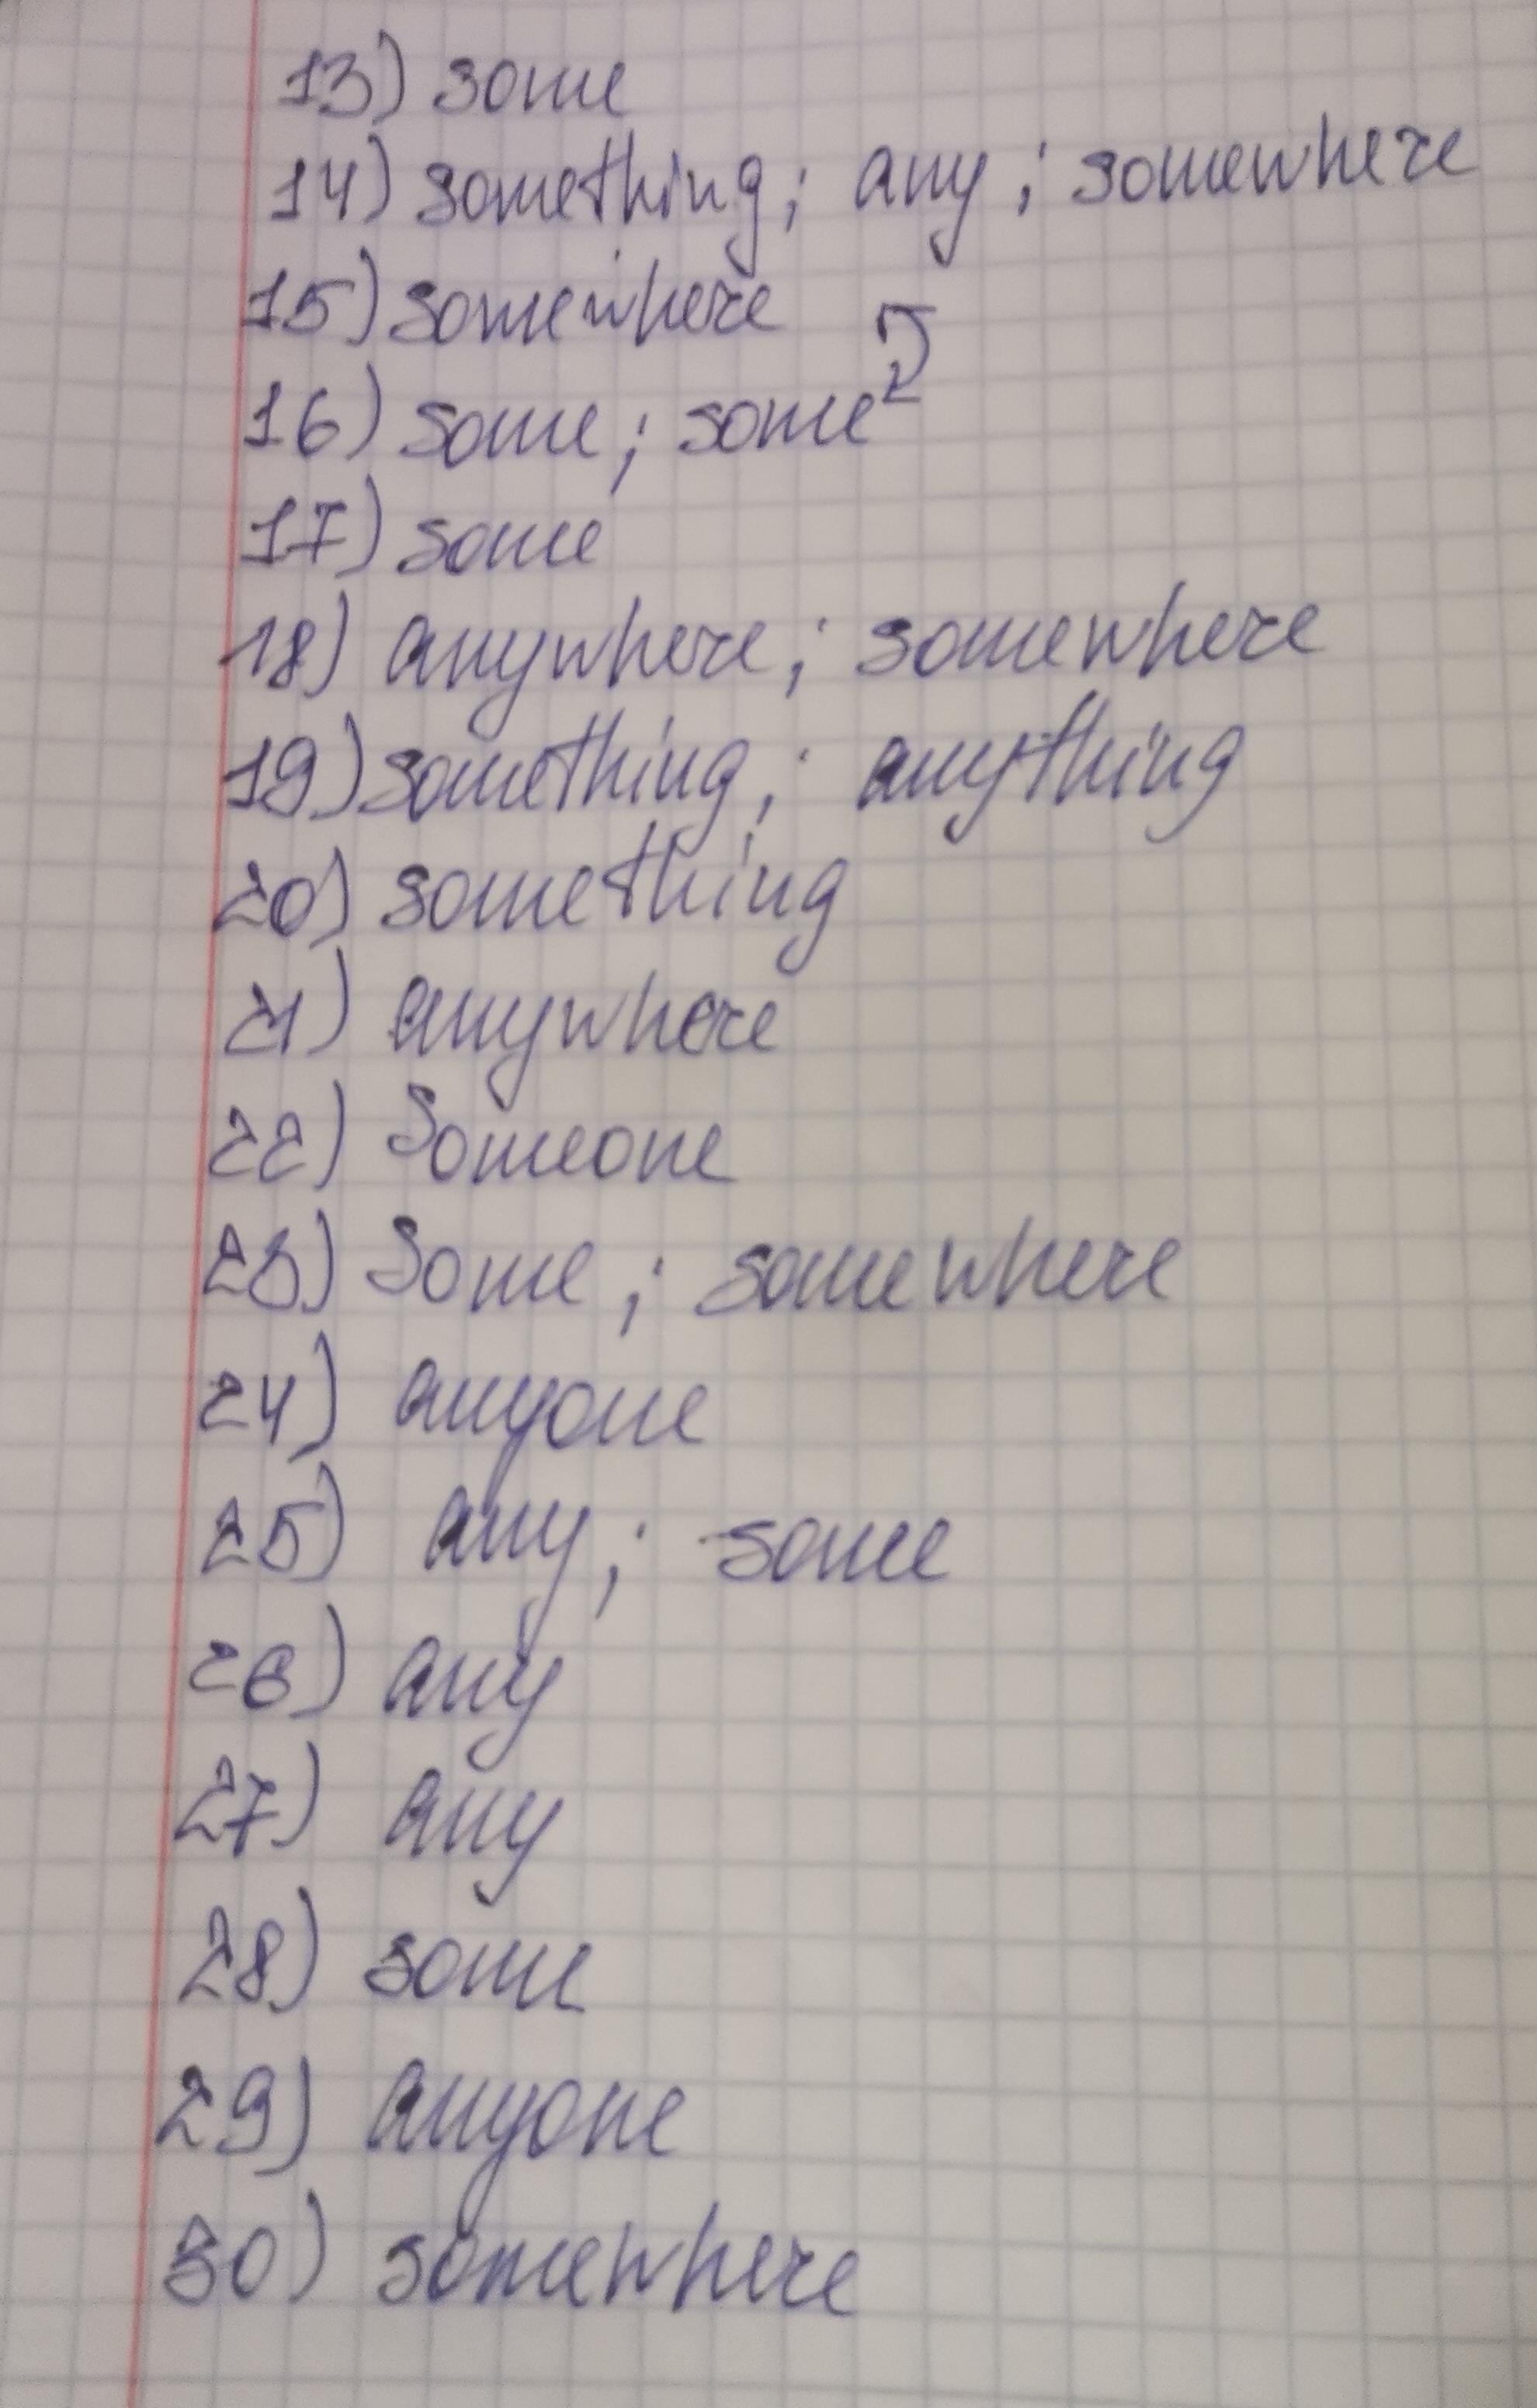 13) some
14) something; any; somewhere
15) somewhere
16) some; some
17) some
18) anywhere; somewhere
19) something; anything
20) something
21) anywhere
22) Someone
23) Some; somewhere
24) anyone
25) any; some
26) any
27) any
28) some
29) anyone
30) somewhere